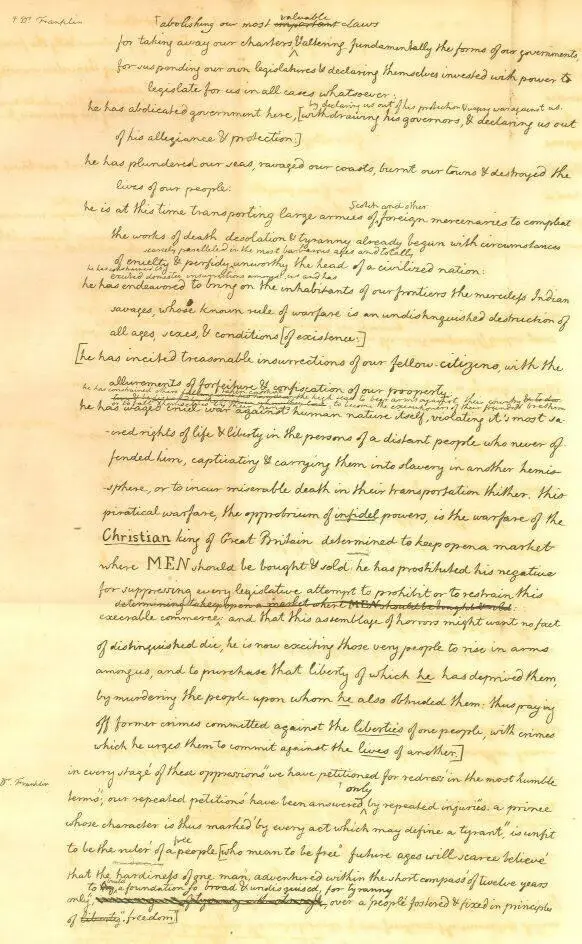 † Dr. Franklin
† abolishing our most important valuable laws
for taking away our charters, & altering fundamentally the forms of our governments,
for suspending our own legislatures & declaring themselves invested with power to
legislate for us in all cases whatsoever:
by declaring us out of his protection & waging war against us.
he has abdicated government here, [withdrawing his governors, & declaring us out
of his allegiance & protection:]
he has plundered our seas, ravaged our coasts, burnt our towns & destroyed the
lives of our people:
Scotch and other
he is at this time transporting large armies of foreign mercenaries to compleat
the works of death desolation & tyranny already begun with circumstances
scarcely paralleled in the most barbarous ages and totally
of cruelty & perfidy unworthy the head of a civilized nation:
excited domestic insurrections amongst us and has
he has endeavored to bring on the inhabitants of our frontiers the merciless Indian
savages, whose known rule of warfare is an undistinguished destruction of
all ages, sexes, & conditions [of existence:]
[he has incited treasonable insurrections of our fellow-citizens, with the
allurements of forfeiture & confiscation of our property:
he has constrained others
to bear arms against their country
to become the executioners of their friends & brethren
he has waged cruel war against human nature itself, violating it's most sa-
-cred rights of life & liberty in the persons of a distant people who never of-
fended him, captivating & carrying them into slavery in another hemis-
-sphere, or to incur miserable death in their transportation thither. this
piratical warfare, the opprobrium of infidel powers, is the warfare of the
Christian king of Great Britain determined to keep open a market
where MEN should be bought & sold he has prostituted his negative
for suppressing every legislative attempt to prohibit or to restrain this
determining to keep open a market where MEN should be bought & sold:
execrable commerce: and that this assemblage of horrors might want no fact
of distinguished die, he is now exciting those very people to rise in arms
among us, and to purchase that liberty of which he has deprived them,
by murdering the people upon whom he also obtruded them: thus paying
off former crimes committed against the liberties of one people, with crimes
which he urges them to commit against the lives of another.]
in every stage of these oppressions we have petitioned for redress in the most humble
Dr. Franklin
† only
terms; our repeated petitions have been answered by repeated injuries. a prince
whose character is thus marked by every act which may define a tyrant, is unfit
free
to be the ruler of a people [who mean to be free. future ages will scarce believe
that the hardiness of one man, adventured within the short compass of twelve years
to build a foundation so broad & undisguised, for tyranny
only, over a people fostered & fixed in principles
of liberty. freedom]